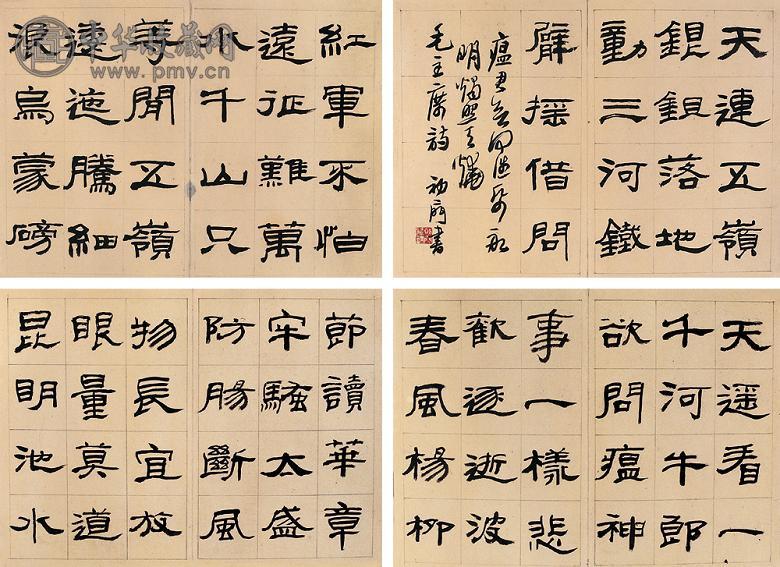 中华收藏网
www.pmv.cn
紅軍不怕
遠征難萬
水千山只
等閒五嶺
逶迤騰細
浪烏蒙磅
天連五嶺
銀鉏落地
動三河鐵
臂搖借問
瘟君欲何往紙船
明燭照天燒
毛主席詩 書
節讀華章
牢騷太盛
防腸斷風
物長宜放
眼量莫道
昆明池水
天遥看一
千河牛郎
欲問瘟神
事一樣悲
歡逐逝波
春風楊柳